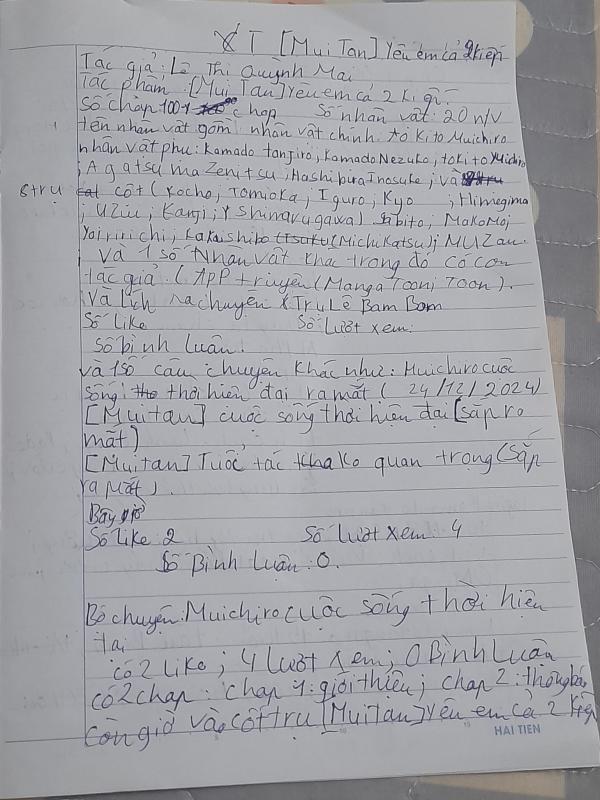 XT [Mui Tan] Yêu em cả 2 kiếp
Tác giả: Lê Thị Quỳnh Mai
Tác phẩm: [Mui Tan] Yêu em cả 2 kiếp.
Số chap 100+ chap Số nhân vật: 20 n/v
tên nhân vật gồm: nhân vật chính: tokito Muichiro
nhân vật phụ: Kamado tanjiro; Kamado Nezuko; tokito Yuichiro
; Agatsuma Zenitsu; Hashibira Inosuke; và
8 trụ cột (Kocho; Tomioka; Iguro; Kyo ; Himegima
; Uzui; Kanji; Shinazugawa) Sabito; Makomo;
Yoiririchi; Kokushibo (Michikatsu); MUZan.
và 1 số Nhân vật khác trong đó có con
tác giả. (App truyện (Manga Toon; Toon).
Và lịch ra chuyện Lê Bam Bom
Số like Số lượt xem:
số bình luận:
và 1 số câu chuyện khác như: Muichiro cuộc
sống thời hiện đại ra mắt (24/12/2024)
[Muitan] cuộc sống thời hiện đại [sắp ra
mắt)
[Muitan] Tuổi tác ko quan trọng (Sắp
ra Mắt).
Bây giờ
Số like: 2 Số lượt xem: 4
Số Bình Luận: 0.
Bộ chuyện: Muichiro cuộc sống thời hiện
tại
có 2 like; 4 lượt xem; 0 Bình Luận
có 2 chap: chap 1: giới thiệu; chap 2: thông báo
Còn giờ vào cốt truyện [MuiTan] Yêu em cả 2 kiếp
HAI TIEN